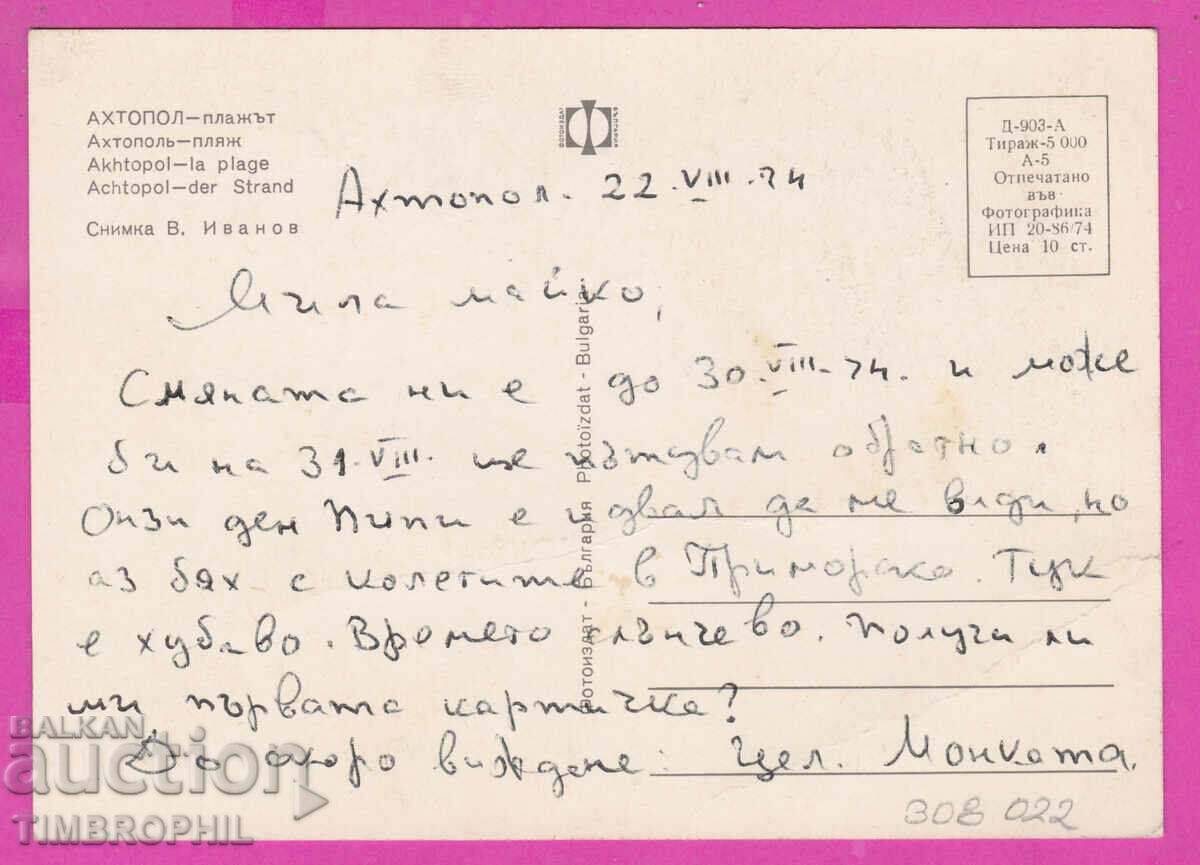 АХТОПОЛ—плажът
Ахтополь—пляж
Akhtopol—la plage
Achtopol—der Strand
Снимка В. Иванов
ФОТОИЗДАТ
БЪЛГАРИЯ
Д-903-А
Тираж-5 000
А-5
Отпечатано
във
Фотографика
ИП 20-86/74
Цена 10 ст.
Ахтопол. 22.VIII.74
Мила майко,
Смяната ни е до 30.VIII.74. и може
би на 31.VIII. ще пътувам обратно.
Онзи ден Пипи е идвал да ме види, но
аз бях с колегите в Приморско. Тук
е хубаво. Времето слънчево. Получи ли
ми първата картичка?
До скоро виждане: Цел. Монката.
Фотоиздат - България Photoïzdat - Bulgarie
BALKAN
auction
TIMBROPHIL
308 022